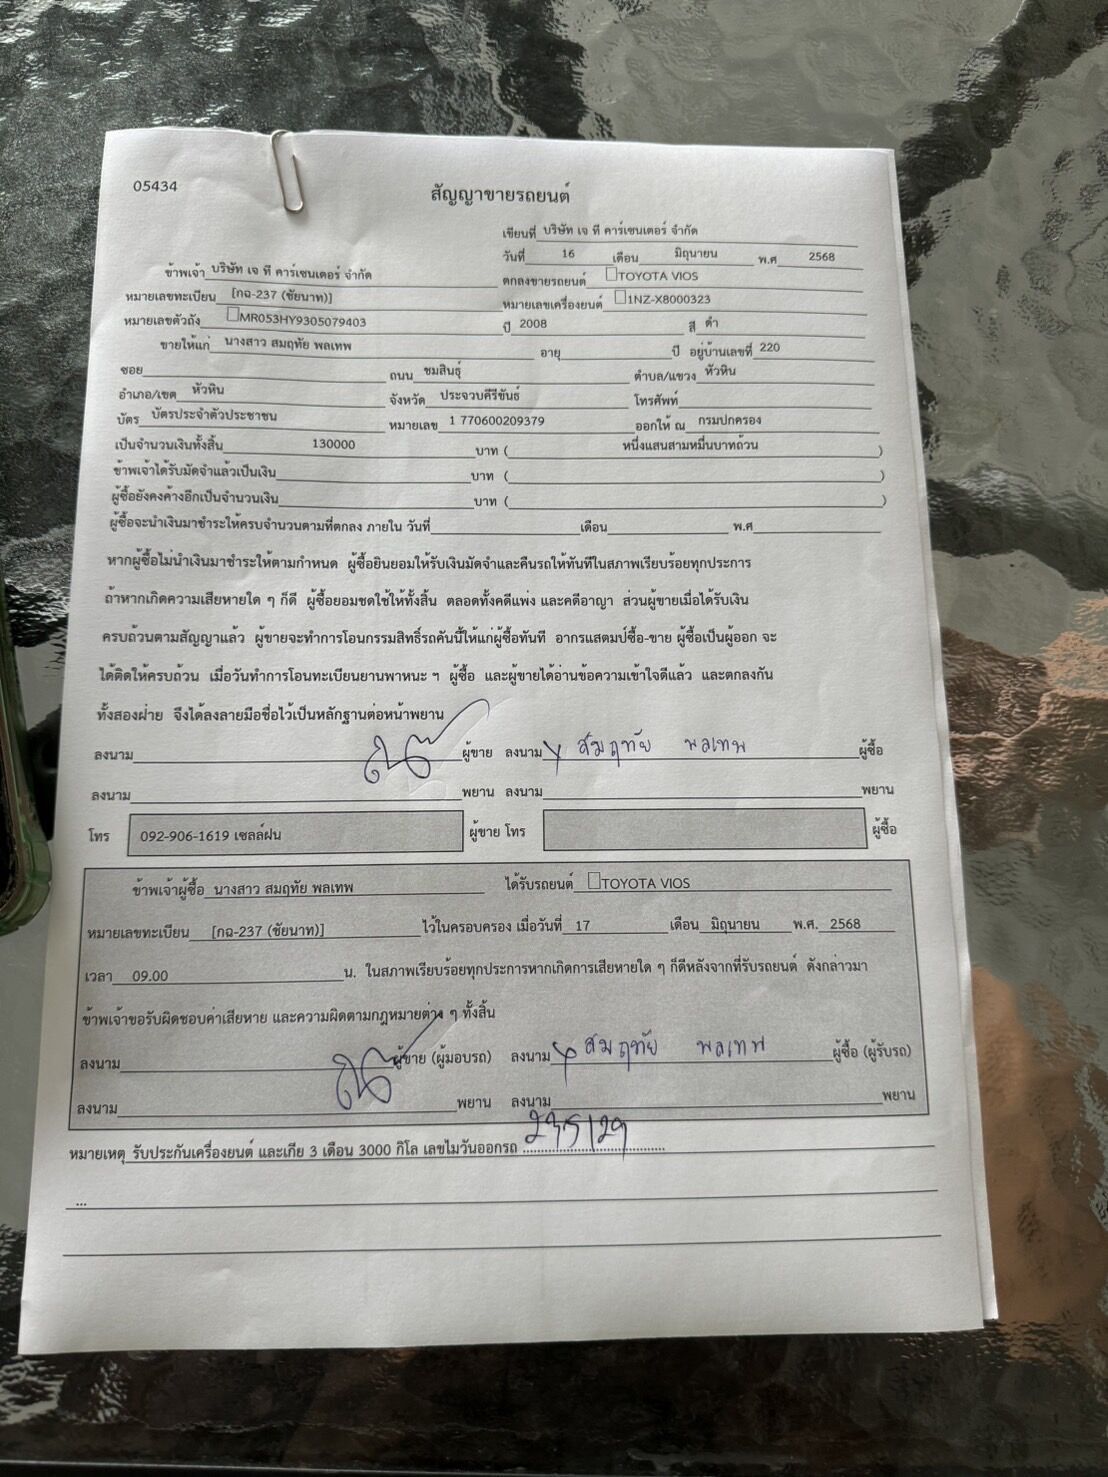 05434
สัญญาขายรถยนต์
เขียนที่ บริษัท เจ ที คาร์เซนเตอร์ จำกัด
วันที่ 16 เดือน มิถุนายน พ.ศ 2568
ข้าพเจ้า บริษัท เจ ที คาร์เซนเตอร์ จำกัด ตกลงขายรถยนต์ TOYOTA VIOS
หมายเลขทะเบียน [กฉ-237 (ชัยนาท)] หมายเลขเครื่องยนต์ 1NZ-X8000323
หมายเลขตัวถัง MR053HY9305079403 ปี 2008 สี ดำ
ขายให้แก่ นางสาว สมฤทัย พลเทพ อายุ ปี อยู่บ้านเลขที่ 220
ซอย ถนน ชมสินธุ์ ตำบล/แขวง หัวหิน
อำเภอ/เขต หัวหิน จังหวัด ประจวบคีรีขันธ์ โทรศัพท์
บัตร บัตรประจำตัวประชาชน หมายเลข 1 770600209379 ออกให้ ณ กรมปกครอง
เป็นจำนวนเงินทั้งสิ้น 130000 บาท ( หนึ่งแสนสามหมื่นบาทถ้วน )
ข้าพเจ้าได้รับมัดจำแล้วเป็นเงิน บาท ( )
ผู้ซื้อยังคงค้างอีกเป็นจำนวนเงิน บาท ( )
ผู้ซื้อจะนำเงินมาชำระให้ครบจำนวนตามที่ตกลง ภายใน วันที่ เดือน พ.ศ
หากผู้ซื้อไม่นำเงินมาชำระให้ตามกำหนด ผู้ซื้อยินยอมให้รับเงินมัดจำและคืนรถให้ทันทีในสภาพเรียบร้อยทุกประการ
ถ้าหากเกิดความเสียหายใด ๆ ก็ดี ผู้ซื้อยอมชดใช้ให้ทั้งสิ้น ตลอดทั้งคดีแพ่ง และคดีอาญา ส่วนผู้ขายเมื่อได้รับเงิน
ครบถ้วนตามสัญญาแล้ว ผู้ขายจะทำการโอนกรรมสิทธิ์รถคันนี้ให้แก่ผู้ซื้อทันที อากรแสตมป์ซื้อ-ขาย ผู้ซื้อเป็นผู้ออก จะ
ได้ติดให้ครบถ้วน เมื่อวันทำการโอนทะเบียนยานพาหนะ ฯ ผู้ซื้อ และผู้ขายได้อ่านข้อความเข้าใจดีแล้ว และตกลงกัน
ทั้งสองฝ่าย จึงได้ลงลายมือชื่อไว้เป็นหลักฐานต่อหน้าพยาน
ลงนาม ผู้ขาย ลงนาม สมฤทัย พลเทพ ผู้ซื้อ
ลงนาม พยาน ลงนาม พยาน
โทร 092-906-1619 เซลล์ฝน ผู้ขาย โทร ผู้ซื้อ
ข้าพเจ้าผู้ซื้อ นางสาว สมฤทัย พลเทพ ได้รับรถยนต์ TOYOTA VIOS
หมายเลขทะเบียน [กฉ-237 (ชัยนาท)] ไว้ในครอบครอง เมื่อวันที่ 17 เดือน มิถุนายน พ.ศ. 2568
เวลา 09.00 น. ในสภาพเรียบร้อยทุกประการหากเกิดการเสียหายใด ๆ ก็ดีหลังจากที่รับรถยนต์ ดังกล่าวมา
ข้าพเจ้าขอรับผิดชอบค่าเสียหาย และความผิดตามกฎหมายต่าง ๆ ทั้งสิ้น
ลงนาม ผู้ขาย (ผู้มอบรถ) ลงนาม สมฤทัย พลเทพ ผู้ซื้อ (ผู้รับรถ)
ลงนาม พยาน ลงนาม พยาน
หมายเหตุ รับประกันเครื่องยนต์ และเกีย 3 เดือน 3000 กิโล เลขไมวันออกรถ
...